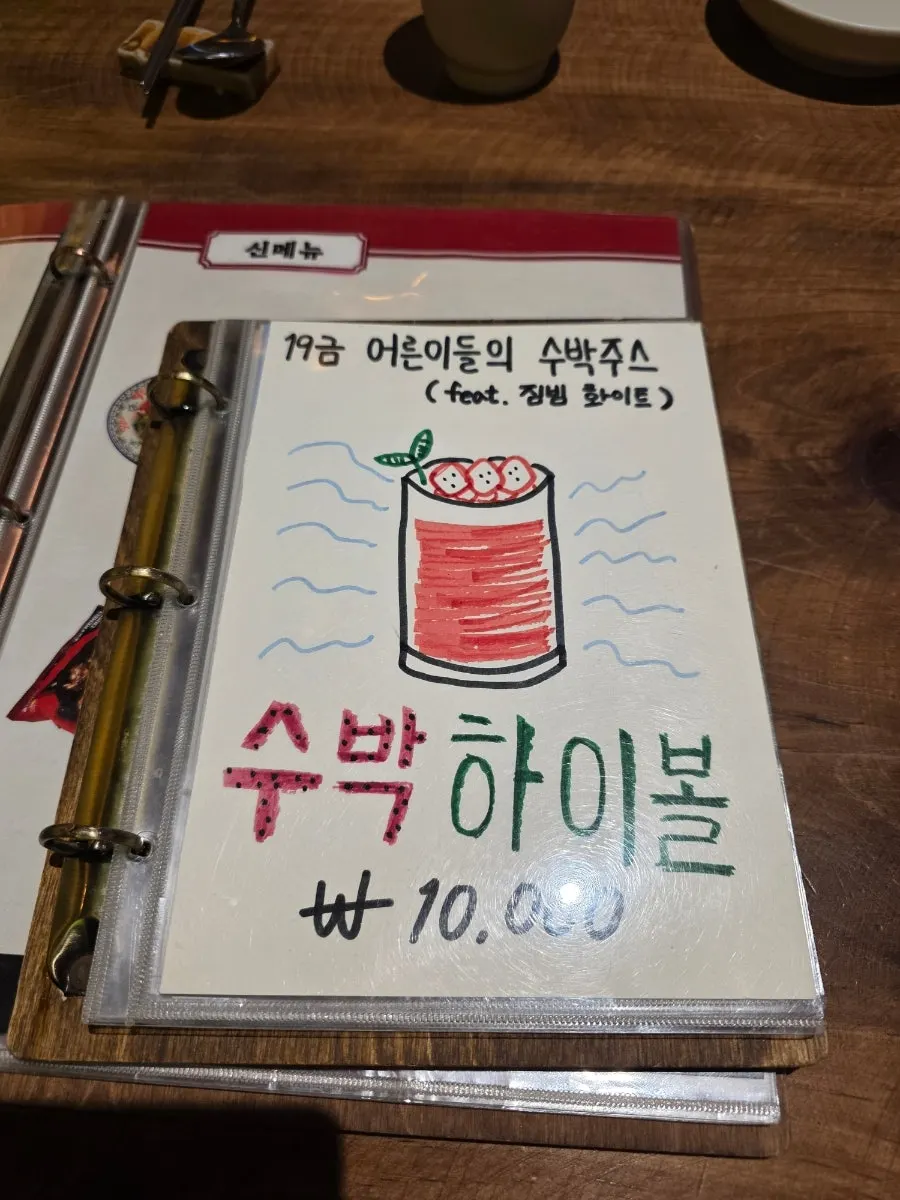 신메뉴
19금 어른이들의 수박주스
(feat. 짐빔 화이트)
수박하이볼
₩ 10.000